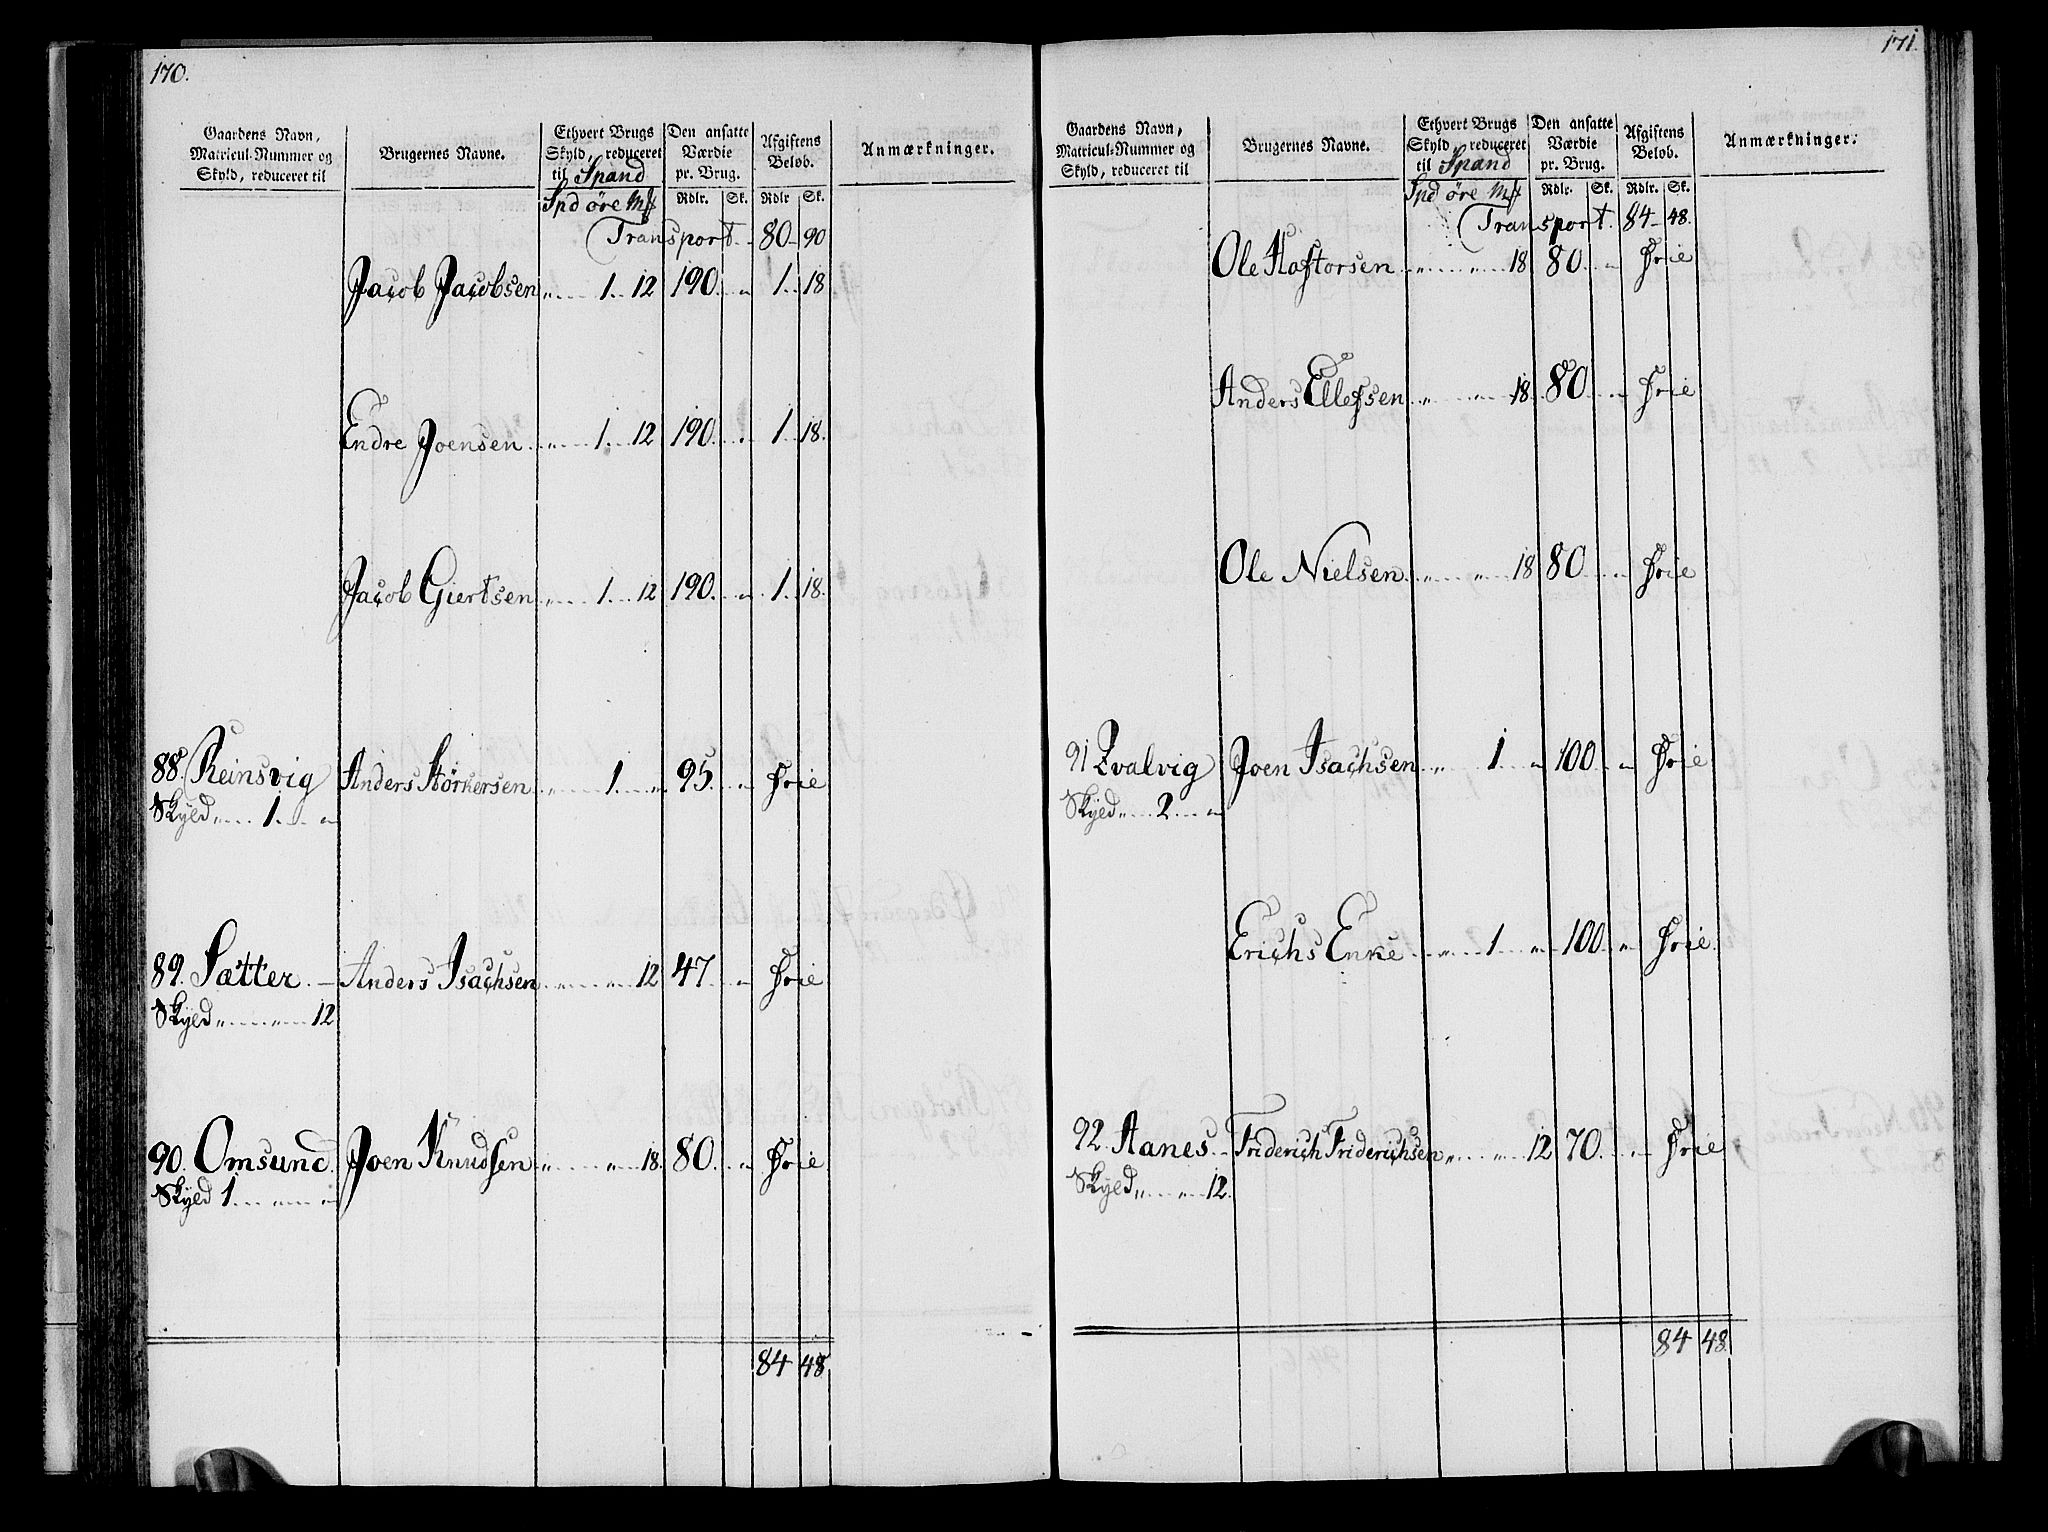 170.
Gaardens Navn, Matricul-Nummer og Skyld, reduceret til
Brugernes Navne.
Ethvert Brugs Skyld, reduceret til Spand
Den ansatte Værdie pr. Brug.
Afgiftens Beløb.
Anmærkninger.
Spd øre Mk Rdlr. Sk. Rdlr Sk.
Transport. 80 90
Jacob Jacobsen „ 1 12 190 „ 1 18
Endre Joensen „ 1 12 190 „ 1 18.
Jacob Giertsen „ 1 12 190 „ 1 18.
88. Reinsvig Anders Størkersen „ 1 „ 95 „ Frie
Skyld „ 1 „
89. Sætter. Anders Isachsen „ „ 12 47 „ Frie
Skyld „ „ 12
90. Omsund. Joen Knudsen „ „ 18. 80 „ Frie
Skyld 1 „ „
84 48
171.
Gaardens Navn, Matricul-Nummer og Skyld, reduceret til
Brugernes Navne.
Ethvert Brugs Skyld, reduceret til Spand
Den ansatte Værdie pr. Brug.
Afgiftens Beløb.
Anmærkninger.
Spd øre Mk Rdlr. Sk. Rdlr. Sk.
Transport. 84 48.
Ole Hastorsen „ „ 18 80 „ Frie
Anders Ellefsen „ „ 18 80 „ Frie
Ole Nielsen „ „ 18 80 „ Frie
91 Qvalvig Joen Isachsen „ 1 „ 100 „ Frie
Skyld „ 2 „
Erichs Enke „ 1 „ 100 „ Frie
92. Aanes Friderich Friderichsen „ „ 12 70 „ Frie
Skyld „ „ 12.
84 48